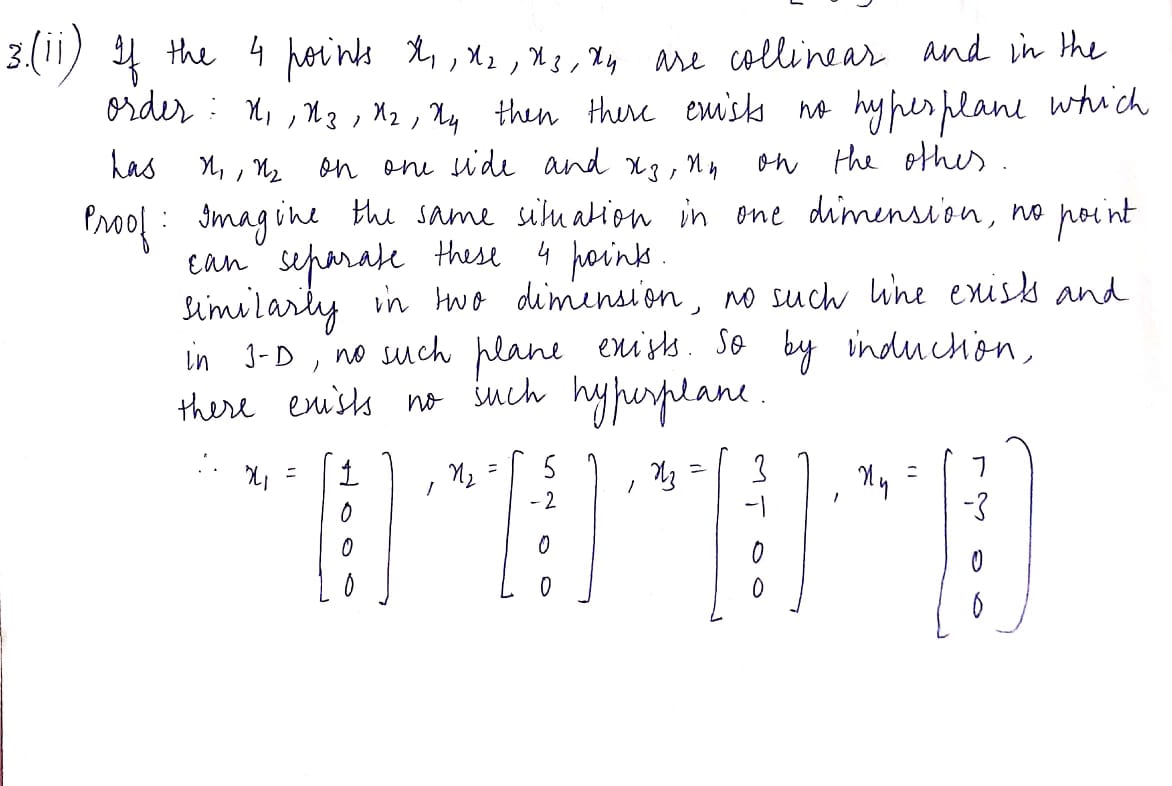 3.(ii) If the 4 points x₁, x₂, x₃, x₄ are collinear and in the
order : x₁, x₃, x₂, x₄ then there exists no hyperplane which
has x₁, x₂ on one side and x₃, x₄ on the other.
Proof : Imagine the same situation in one dimension, no point
can separate these 4 points.
Similarly in two dimension, no such line exists and
in 3-D, no such plane exists. So by induction,
there exists no such hyperplane.
∴ x₁ = [1 , x₂ = [5 , x₃ = [3 , x₄ = [7
0 -2 -1 -3
0 0 0 0
0] 0] 0] 0]